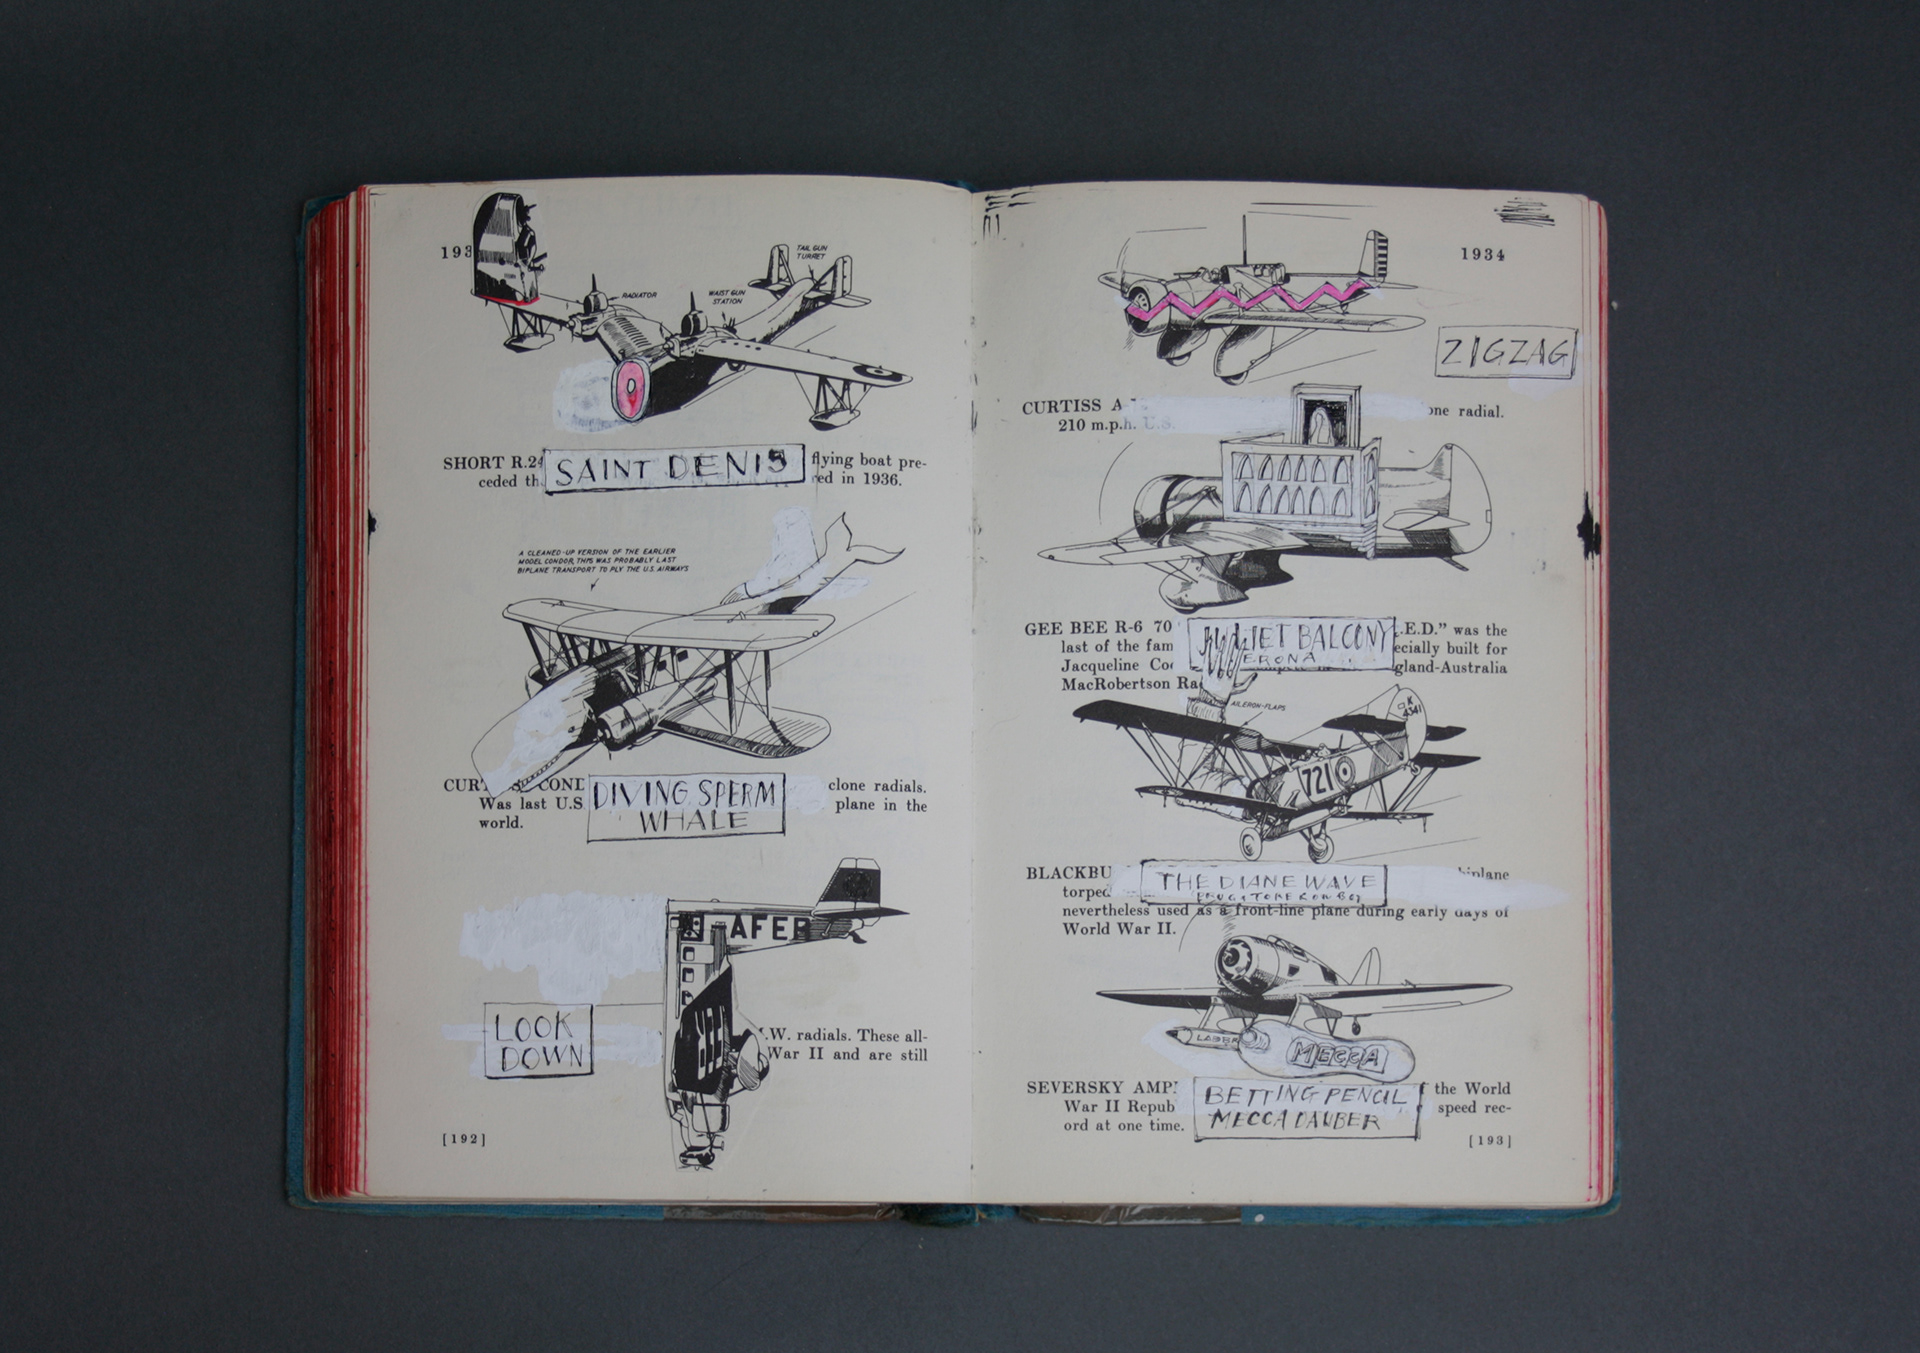 193
TAIL GUN
TURRET
RADIATOR
WAIST GUN
STATION
SHORT R.24
SAINT DENIS
flying boat pre-
ceded th
red in 1936.
A CLEANED-UP VERSION OF THE EARLIER
MODEL CONDOR, THIS WAS PROBABLY LAST
BIPLANE TRANSPORT TO PLY THE U.S. AIRWAYS
CONE
DIVING SPERM
WHALE
clone radials.
Was last U.S
plane in the
world.
AFER
LOOK
DOWN
.W. radials. These all-
War II and are still
[192]
1934
ZIGZAG
CURTISS A
one radial.
210 m.p.h. U.S.
GEE BEE R-6 70
BALCONY
.E.D." was the
last of the fam
ERONA
ecially built for
Jacqueline Coc
gland-Australia
MacRobertson Ra
AILERON-FLAPS
K
4541
721
BLACKBU
THE DIANE WAVE
biplane
torped
nevertheless used as a front-line plane during early days of
World War II.
LABBR
MECCA
SEVERSKY AMP
BETTING PENCIL
MECCA DAUBER
f the World
War II Repub
speed rec-
ord at one time.
[193]